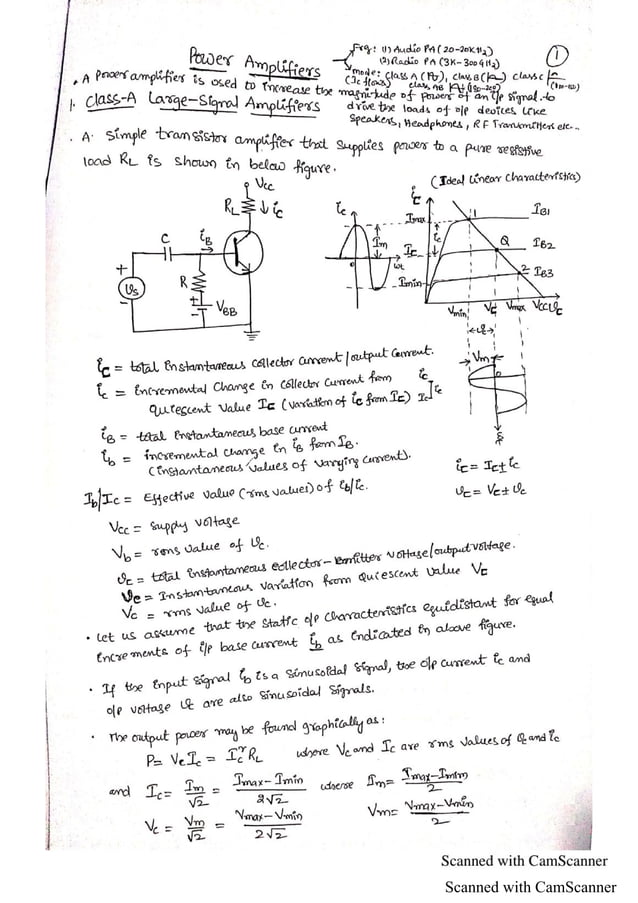 Power Amplifiers
Frq: (1) Audio PA (20-20KHz)
(2) Radio PA (3K-300GHz)
1
mode: class A (Po), class B (
) class C
(Ic flows) class AB
(180-360)
. A Power amplifier is used to increase the magnitude of power of an i/p signal. to
drive the loads of o/p devices like
Speakers, Headphones, RF Transmitters etc..
1. Class-A Large-Signal Amplifiers
. A simple transistor amplifier that supplies power to a pure resistive
load RL is shown in below figure.
(Ideal linear characteristics)
Vcc
RL
ic
C
iB
R
VBB
Vs
+
-
+
-
ic
Im
0
wt
iC
Imax
IC
Imin
ic
1
Q
2
IB1
IB2
IB3
Vmin
VC
Vmax
VCC
VC
Vm
0
t
iC = total Instantaneous collector current / output Current.
ic = Incremental Change in Collector Current from
Quiescent Value IC (variation of iC from IC)
iB = total Instantaneous base current
ib = incremental change in iB from IB.
(instantaneous values of varying current).
iC = IC ± ic
VC = VC ± Vc
Ib/Ic = Effective value (rms values) of ib/ic.
Vcc = Supply voltage
Vb = rms value of Vc.
Vc = total instantaneous collector-Emitter voltage/output voltage.
Vc = Instantaneous variation from Quiescent value VC
Vc = rms value of Vc.
• Let us assume that the static o/p characteristics equidistant for equal
increments of i/p base current ib as indicated in above figure.
• If the input signal ib is a sinusoidal signal, the o/p current ic and
o/p voltage Vc are also sinusoidal signals.
• The output power may be found graphically as:
P = VcIc = Ic²RL where Vc and Ic are rms values of Vc and ic
and Ic = Im/√2 = Imax-Imin/2√2 where Im = Imax-Imin/2
Vc = Vm/√2 = Vmax-Vmin/2√2 Vm = Vmax-Vmin/2
Scanned with CamScanner
Scanned with CamScanner